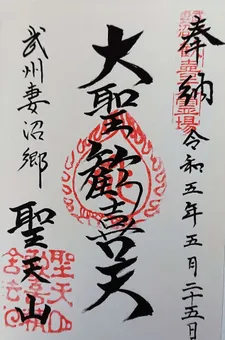 奉納
令和五年五月二十五日
大聖歓喜天
武州妻沼郷
聖天山